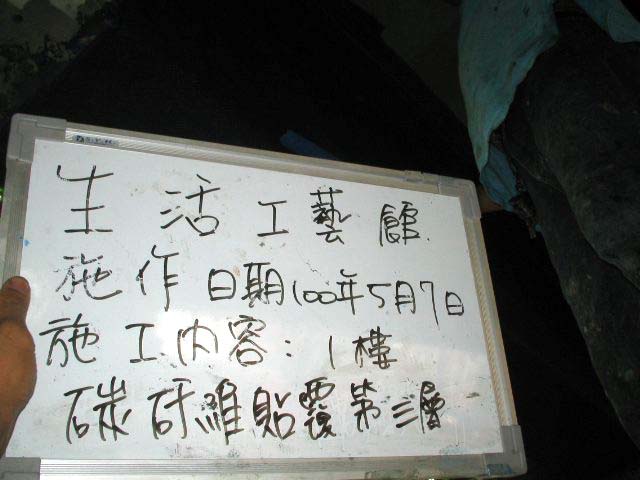 生活工藝館
施作日期100年5月7日
施工內容:1樓
碳矸維貼覆第三層